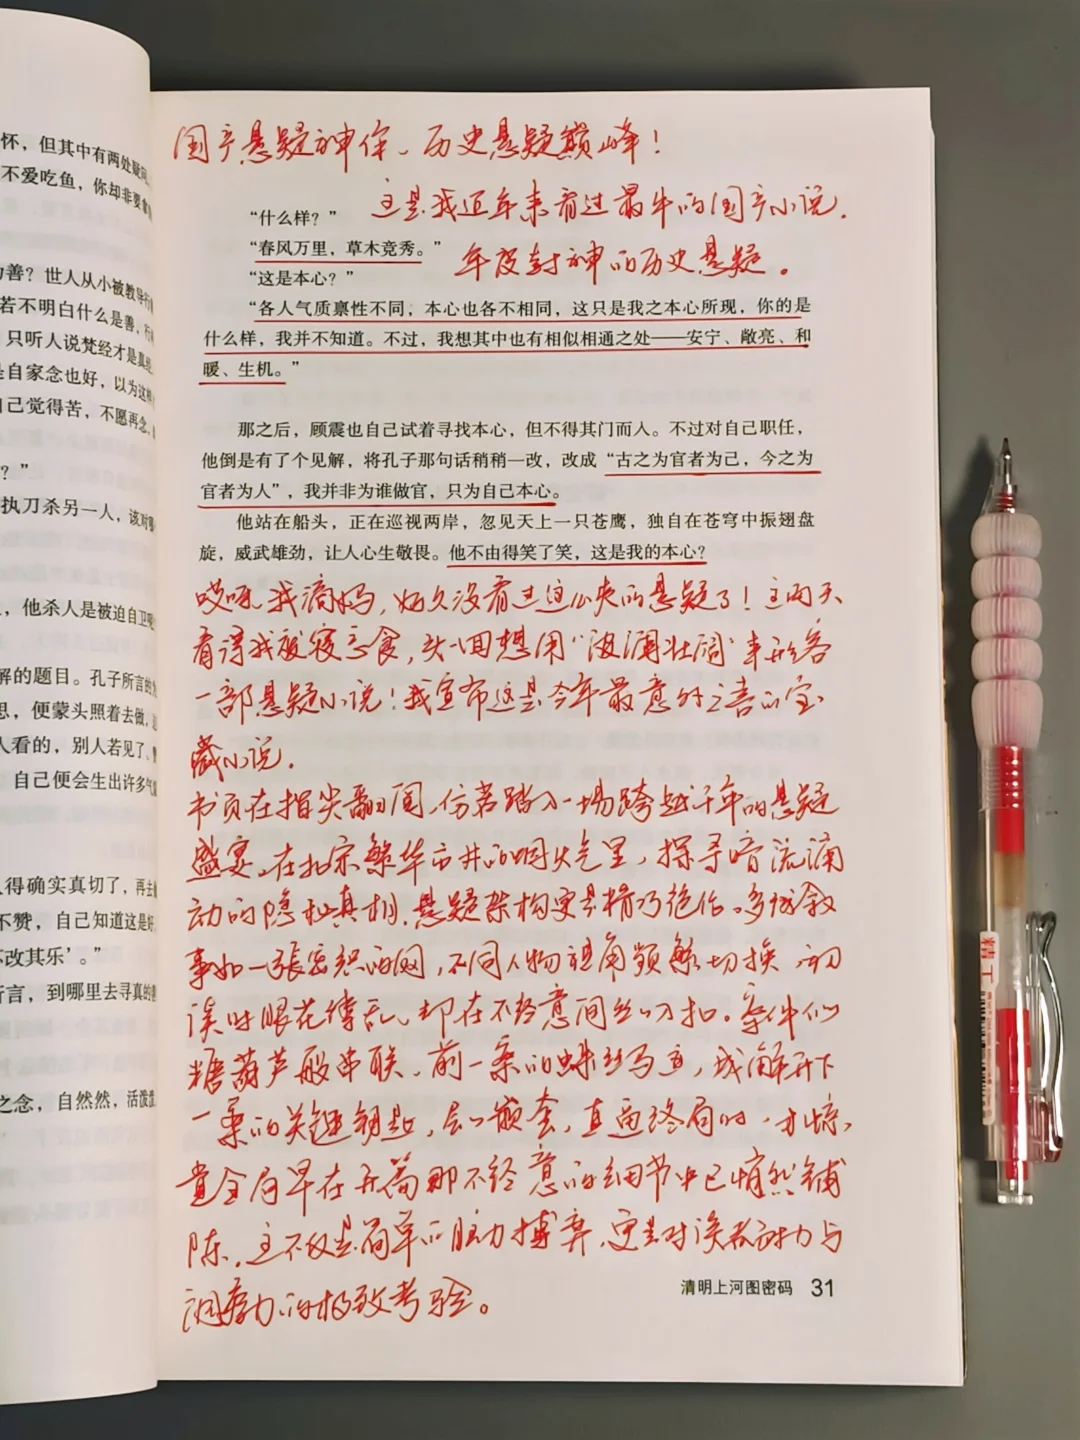 怀，但其中有两处疑问
不爱吃鱼，你却非要拿
善？世人从小被教导行
若不明白什么是善，行
只听人说梵经才是真经
是自家念也好，以为这样
自己觉得苦，不愿再念。
？”
执刀杀另一人，该对哪
，他杀人是被迫自卫呢
解的题目。孔子所言的为
思，便蒙头照着去做，
人看的，别人若见了、
自己便会生出许多气
得确实真切了，再去
不赞，自己知道这是好，
不改其乐’。”
行言，到哪里去寻真的善
之念，自然然，活泼泼
国产悬疑神作、历史悬疑巅峰！
这是我近年来看过最牛的国产小说。
年度封神的历史悬疑。
“什么样？”
“春风万里，草木竞秀。”
“这是本心？”
“各人气质禀性不同，本心也各不相同，这只是我之本心所现，你的是
什么样，我并不知道。不过，我想其中也有相似相通之处——安宁、敞亮、和
暖、生机。”
那之后，顾震也自己试着寻找本心，但不得其门而入。不过对自己职任，
他倒是有了个见解，将孔子那句话稍稍一改，改成“古之为官者为己，今之为
官者为人”，我并非为谁做官，只为自己本心。
他站在船头，正在巡视两岸，忽见天上一只苍鹰，独自在苍穹中振翅盘
旋，威武雄劲，让人心生敬畏。他不由得笑了笑，这是我的本心？
哎呀我滴妈，好久没看过这么爽的悬疑了！这两天
看得我废寝忘食，头一回想用“波澜壮阔”来形容
一部悬疑小说！我宣布这是今年最意外之喜的宝
藏小说。
书页在指尖翻阅，仿若踏入一场跨越千年的悬疑
盛宴。在北宋繁华市井的烟火气里，探寻暗流涌
动的隐秘真相。悬疑架构更是精巧绝伦。多线叙
事如一张密织的网，不同人物视角频繁切换，初
读时眼花缭乱，却在不经意间丝丝入扣。案件似
糖葫芦般串联，前一案的蛛丝马迹，成解开下
一案的关键钥匙，层层嵌套，直通终局时，才惊
觉全局早在开篇那不经意的细节中已悄然铺
陈。这不仅是简单的脑力博弈，更是对读者耐力与
洞察力的极致考验。
清明上河图密码 31
精工